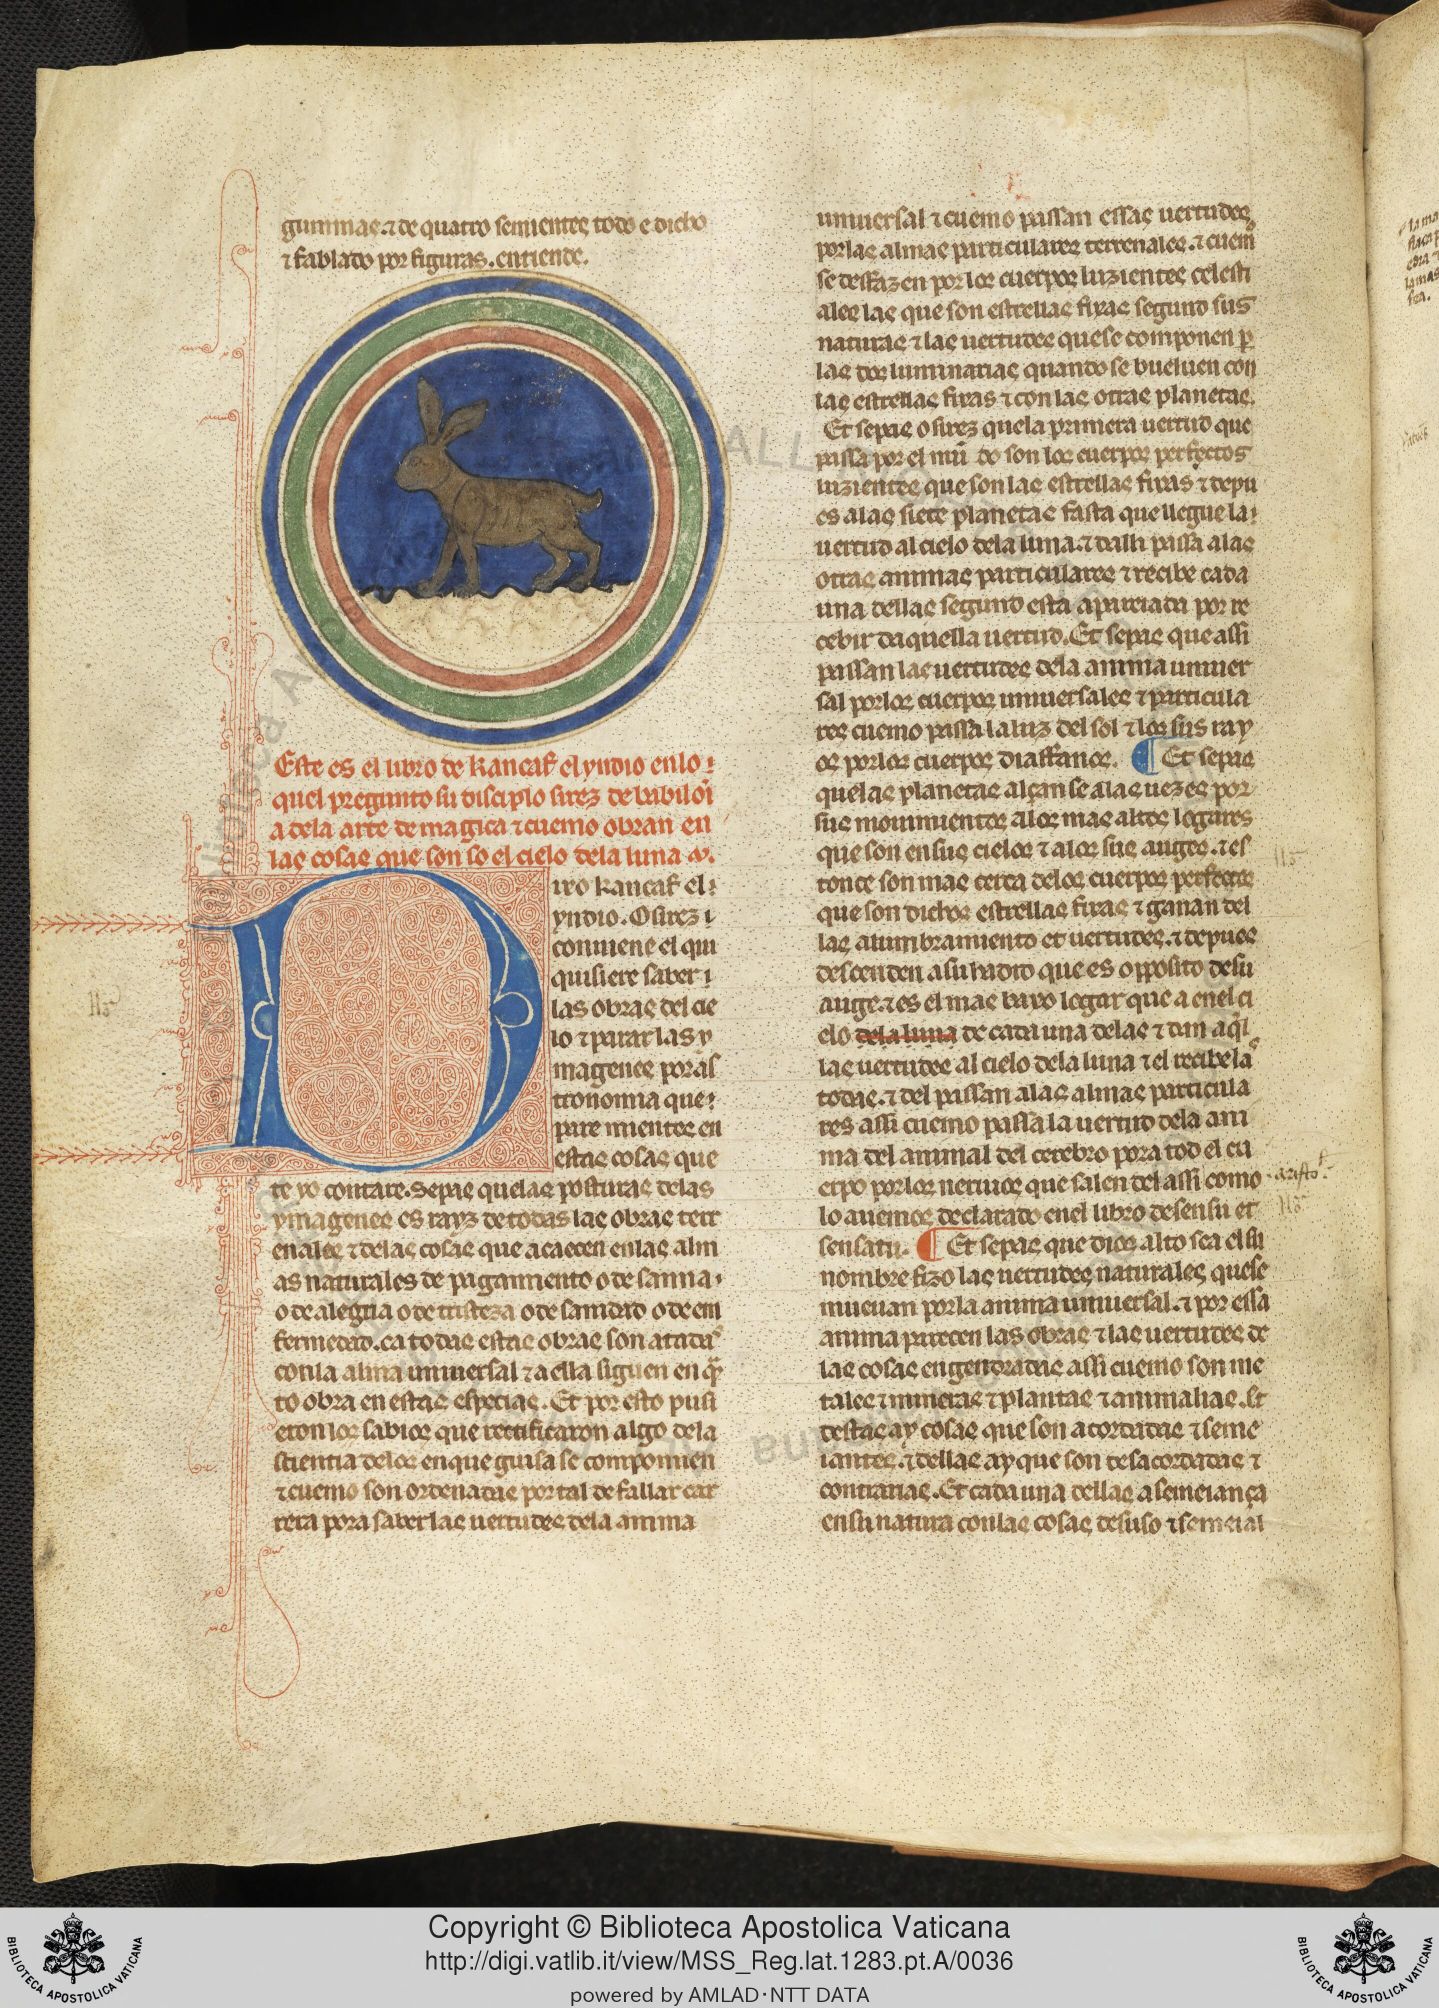 gummas. ⁊ de quatro semientes todo e dicho
⁊ fablado por figuras. entiende.
Este es el libro de Kancaf el yndio en lo
quel pregunto su disciplo sirez de babiloni
a dela arte de magica ⁊ cuemo obran en
las cosas que son so el cielo dela luna
Dixo Kancaf el
yndio. O sirez
conuiene el qui
quisiere saber
las obras del cie
lo ⁊ parar las y
magenes por as
tronomia que
pare mientes en
estas cosas que
te yo contare. Sepas quelas posturas delas
ymagenes es rayz de todas las obras terr
enales ⁊ delas cosas que acaecen enlas alm
as naturales de pagamiento o de sanna
o de alegria o de tristeza o de sanidad o de em
fermedad. ca todas estas obras son atadas
conla alma uniuersal ⁊ a ella siguen en qᷓ
to obra en estas especias. Et por esto pusi
eron los sabios que rectificaron algo dela
scientia delos en que guisa se componien
⁊ cuemo son ordenadas por tal de fallar car
rera pora saber las uertudes dela anima
uniuersal ⁊ cuemo passan essas uertudes
por las almas particulares terrenales. ⁊ cuem̄
se desfazen por los cuerpos luzientes celesti
ales las que son estrellas fixas segund sus
naturas ⁊ las uertudes quese componen pᷓ
las dos luminarias quando se bueluen con
las estrellas fixas ⁊ con las otras planetas.
Et sepas o sirez quela primera uertud que
passa por el mū do son los cuerpos perfectos
luzientes que son las estrellas fixas ⁊ depu
es alas siete planetas fasta que llegue la
uertud al cielo dela luna. ⁊ dalli passa alas
otras animas particulares ⁊ recibe cada
una dellas segund esta apareiada por re
cebir daquella uertud. Et sepas que assi
passan las uertudes dela anima uniuer
sal por los cuerpos uniuersales ⁊ particula
res cuemo passa la luz del sol ⁊ los sus ray
os por los cuerpos diaffanos. ¶ Et sepas
quelas planetas alçan se alas uezes por
sus mouimientos alos mas altos logares
que son en sus cielos ⁊ alos sus auges. ⁊ es
tonce son mas cerca delos cuerpos perfectos
que son dichos estrellas fixas ⁊ ganan del
las alumbramiento et uertudes. ⁊ depues
descenden a su nadio que es opposito de su
auge. ⁊ es el mas baxo logar que a en el ci
elo dela luna de cada una delas ⁊ dan aql
las uertudes al cielo dela luna ⁊ el recibe las
todas. ⁊ del passan alas almas particula
res assi cuemo passa la uertud dela ani
ma del animal del cerebro pora tod el cu
erpo por los neruios que salen del assi como
lo auemos declarado en el libro de sensu et
sensatu. ¶ Et sepas que dios alto sea el su
nombre fizo las uertudes naturales quese
mueuan por la anima uniuersal. ⁊ por essa
anima parecen las obras ⁊ las uertudes de
las cosas engendradas assi cuemo son me
tales ⁊ mineras ⁊ plantas ⁊ animalias. Et
destas ay cosas que son acordadas ⁊ seme
iantes. ⁊ dellas ay que son desacordadas ⁊
contrarias. Et cada una dellas a semeiança
en su natura con las cosas desuso ⁊ semeial
Copyright © Biblioteca Apostolica Vaticana
http://digi.vatlib.it/view/MSS_Reg.lat.1283.pt.A/0036
powered by AMLAD·NTT DATA
BIBLIOTECA APOSTOLICA VATICANA
BIBLIOTECA APOSTOLICA VATICANA